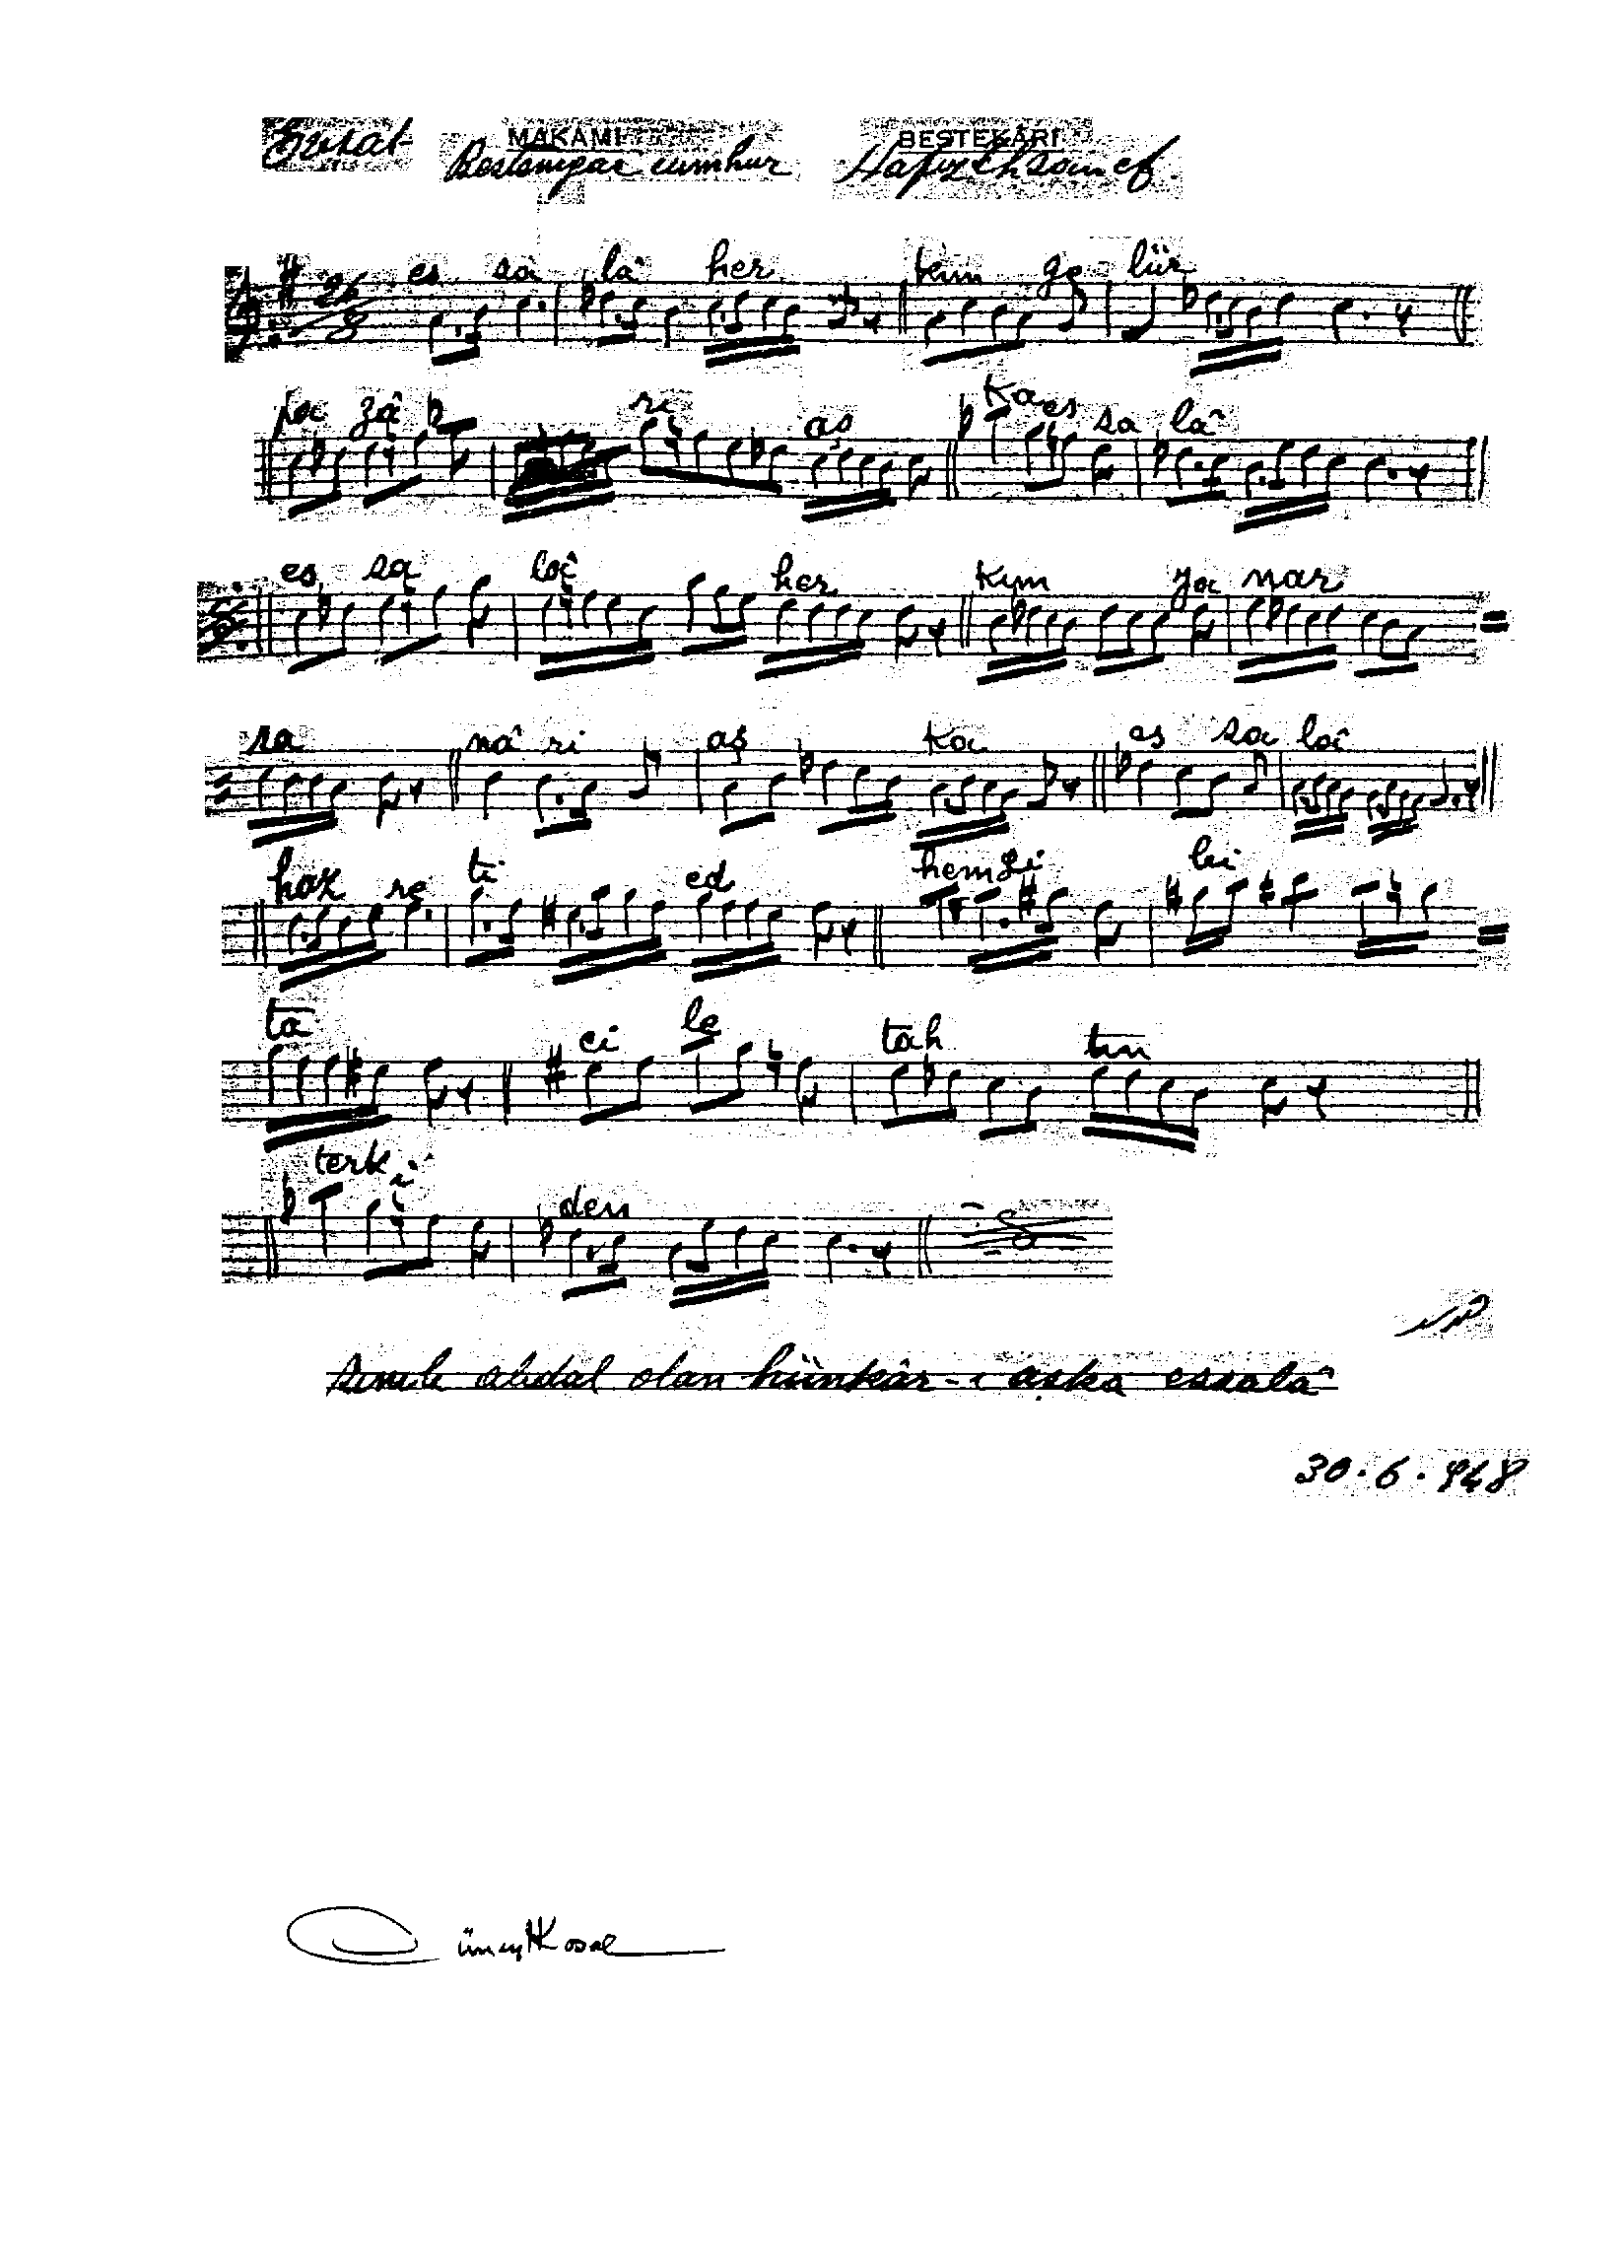 Evsat MAKAMI BESTEKÂRI
Bestenigar cumhur Hafız Ehsan ef.
26
8
es sa lâ her kim ge lür
pa zâ ri aş Ka es sa lâ
es sa lâ her Kim ya nar
sa nâ ri aş Ka es sa lâ
haz re ti ed hem gi bi
ta ci le tah tın
terk i den
abdal olan hünkâr-ı aşka essalâ
30.6.948
Cüneyt Kosal